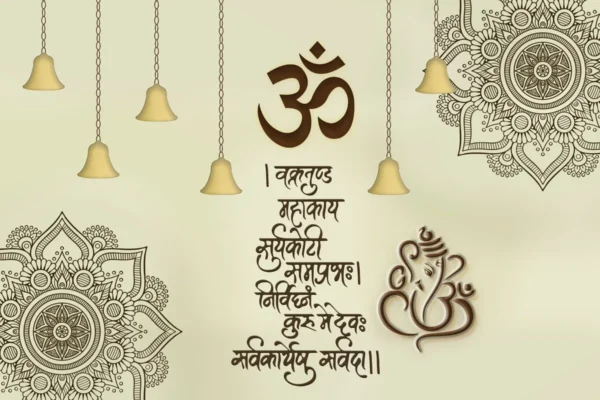 ॐ
। वक्रतुण्ड
महाकाय
सुर्यकोटी
समप्रभः।
निर्विघ्नं
कुरु मे देवः
सर्वकार्येषु सर्वदा।।
ॐ